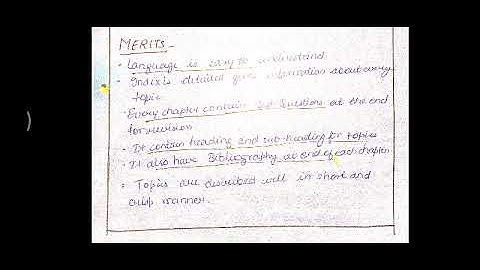 MERITS -
· Language is easy to understand
· Index is detailed gives information about every
topic
· Every chapter contain Questions at the end
for revision
· It contain heading and sub-heading for topics
· It also have Bibliography at end of each chapter
· Topics are described well in short and
crisp manner.